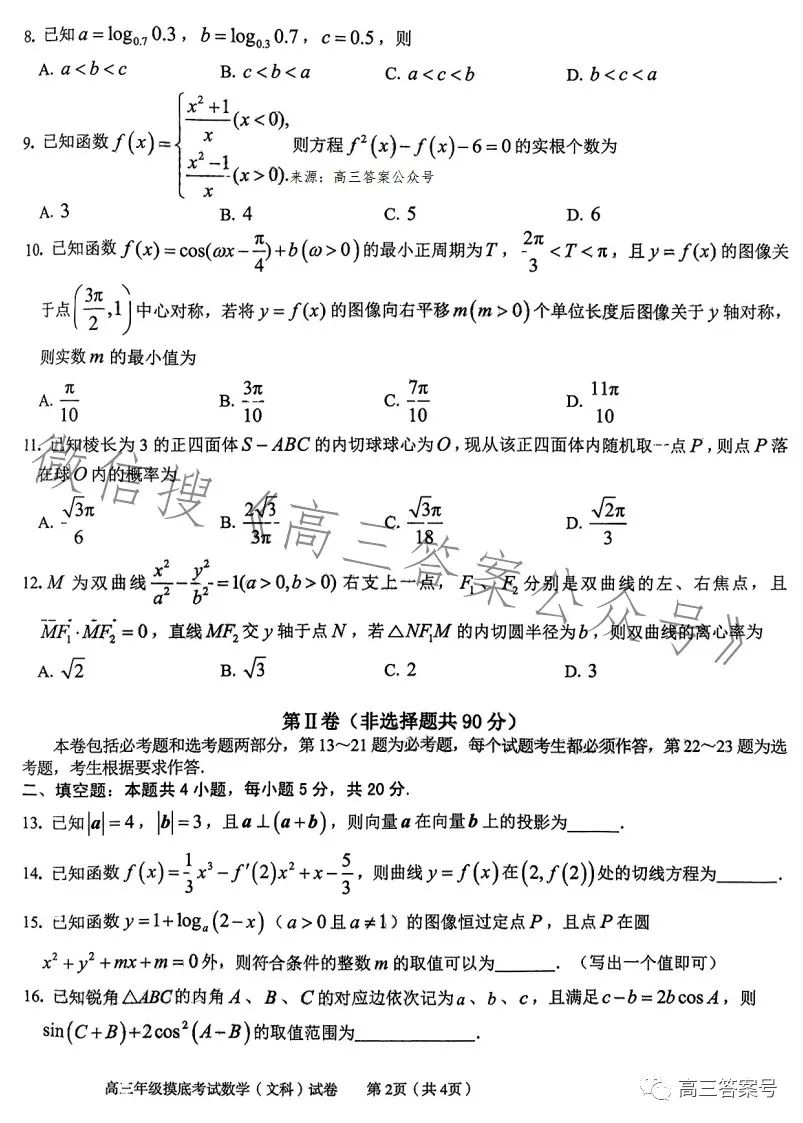 8. 已知 a = log₀.₇ 0.3，b = log₀.₃ 0.7，c = 0.5，则
A. a < b < c B. c < b < a C. a < c < b D. b < c < a
9. 已知函数 f(x) = { (x²+1)/x (x < 0), (x²−1)/x (x > 0). 则方程 f²(x) − f(x) − 6 = 0 的实根个数为
来源：高三答案公众号
A. 3 B. 4 C. 5 D. 6
10. 已知函数 f(x) = cos(ωx − π/4) + b (ω > 0) 的最小正周期为 T，2π/3 < T < π，且 y = f(x) 的图像关
于点 (3π/2, 1) 中心对称，若将 y = f(x) 的图像向右平移 m(m > 0) 个单位长度后图像关于 y 轴对称，
则实数 m 的最小值为
A. π/10 B. 3π/10 C. 7π/10 D. 11π/10
11. 已知棱长为 3 的正四面体 S − ABC 的内切球球心为 O，现从该正四面体内随机取一点 P，则点 P 落
在球 O 内的概率为
A. √3π/6 B. 2√3/3π C. √3π/18 D. √2π/3
12. M 为双曲线 x²/a² − y²/b² = 1(a > 0, b > 0) 右支上一点，F₁、F₂ 分别是双曲线的左、右焦点，且
MF₁ · MF₂ = 0，直线 MF₂ 交 y 轴于点 N，若 △NF₁M 的内切圆半径为 b，则双曲线的离心率为
A. √2 B. √3 C. 2 D. 3
微信搜《高三答案公众号》
第Ⅱ卷（非选择题共 90 分）
本卷包括必考题和选考题两部分，第 13～21 题为必考题，每个试题考生都必须作答，第 22～23 题为选
考题，考生根据要求作答.
二、填空题：本题共 4 小题，每小题 5 分，共 20 分.
13. 已知 |a| = 4，|b| = 3，且 a ⊥ (a + b)，则向量 a 在向量 b 上的投影为______.
14. 已知函数 f(x) = 1/3 x³ − f′(2)x² + x − 5/3，则曲线 y = f(x) 在 (2, f(2)) 处的切线方程为______.
15. 已知函数 y = 1 + logₐ(2 − x)（a > 0 且 a ≠ 1）的图像恒过定点 P，且点 P 在圆
x² + y² + mx + m = 0 外，则符合条件的整数 m 的取值可以为______.（写出一个值即可）
16. 已知锐角 △ABC 的内角 A、B、C 的对应边依次记为 a、b、c，且满足 c − b = 2b cos A，则
sin(C + B) + 2cos²(A − B) 的取值范围为____________.
高三年级摸底考试数学（文科）试卷 第 2页（共 4页）
高三答案号